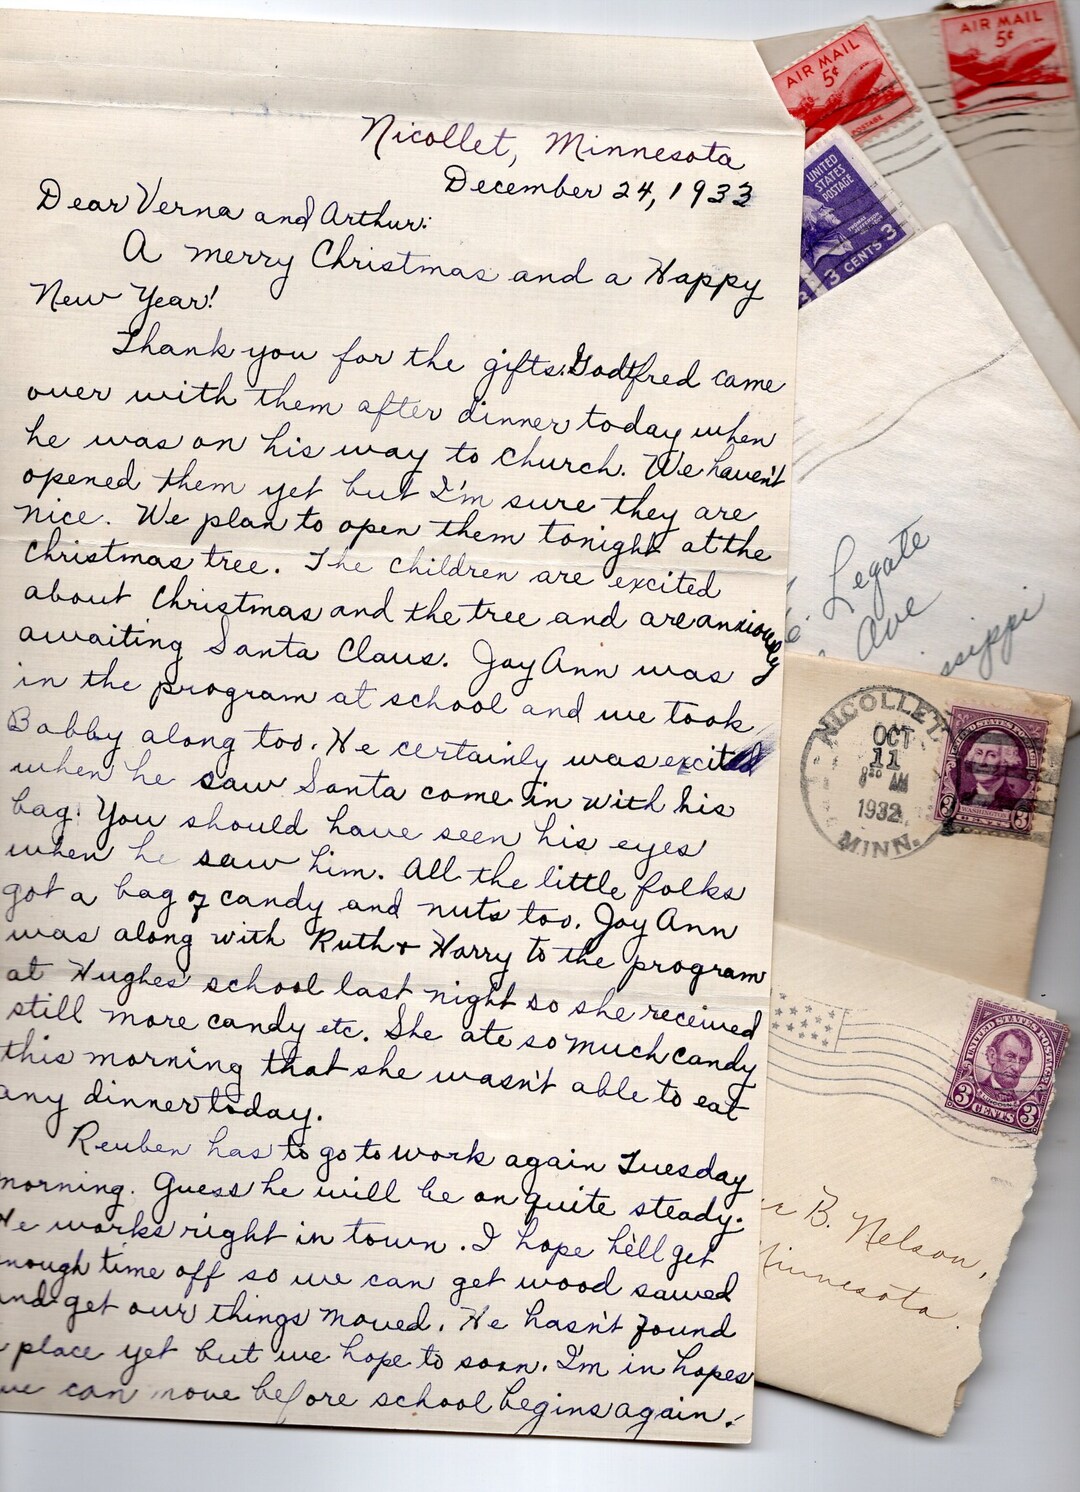 Nicollet, Minnesota
December 24, 1933
Dear Verna and Arthur:
A merry Christmas and a Happy
New Year!
Thank you for the gifts. Godtfred came
over with them after dinner today when
he was on his way to church. We haven't
opened them yet but I'm sure they are
nice. We plan to open them tonight at the
Christmas tree. The children are excited
about Christmas and the tree and are anxiously
awaiting Santa Claus. Joy Ann was
in the program at school and we took
Bobby along too. He certainly was excited
when he saw Santa come in with his
bag. You should have seen his eyes
when he saw him. All the little folks
got a bag of candy and nuts too. Joy Ann
was along with Ruth + Harry to the program
at Hughes' school last night so she received
still more candy etc. She ate so much candy
this morning that she wasn't able to eat
any dinner today.
Reuben has to go to work again Tuesday
morning. Guess he will be on quite steady.
He works right in town. I hope he'll get
enough time off so we can get wood sawed
and get our things moved. He hasn't found
place yet but we hope to soon. I'm in hopes
we can move before school begins again.
AIR MAIL
5¢
POSTAGE
AIR MAIL
5¢
UNITED
STATES
POSTAGE
THOMAS
JEFFERSON
3 CENTS 3
Legate
Ave
ssippi
NICOLLET
OCT
11
8 30 AM
1932
MINN.
UNITED STATES POSTAGE
WASHINGTON
3 3
UNITED STATES POSTAGE
LINCOLN
3 CENTS 3
B. Nelson,
Minnesota.